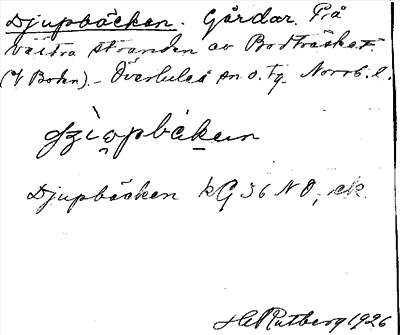 Djupbäcken. Gårdar. På
västra stranden av Bodträsket
(V Boden). Överluleå sn o. tg. Norrb. l.
Djupbäcken kG 36 NO, ek.
H Rutberg 1926